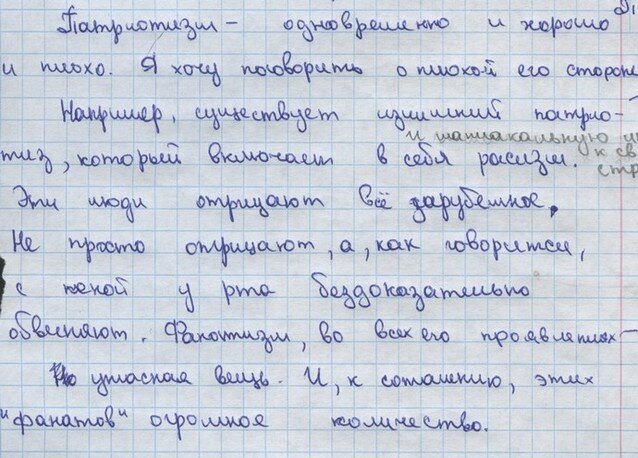 Патриотизм - одновременно и хорошо
и плохо. Я хочу поговорить о плохой его стороне
Например, существует излишний патрио-
и маниакальную
тиз, который включает в себя расизм. к св
стр
Эти люди отрицают всё зарубежное.
Не просто отрицают, а, как говорится,
с пеной у рта бездоказательно
обвиняют. Фанатизм, во всех его проявлениях -
ужасная вещь. И, к сожалению, этих
"фанатов" огромное количество.